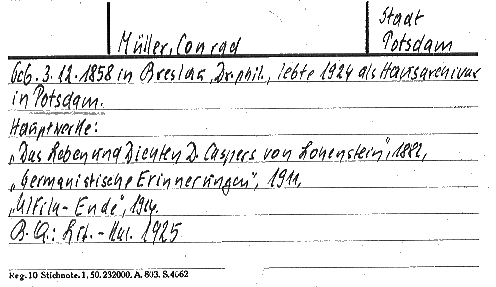 Stadt
Müller, Conrad
Potsdam
Geb. 3.12.1858 in Breslau, Dr. phil., lebte 1924 als Hausarchivar
in Potsdam.
Hauptwerke:
„Das Leben und Dichten D. Caspers von Lohenstein", 1882,
„Germanistische Erinnerungen", 1911,
„Ulfila-Ende", 1914.
B.Q.: Lit.-Kal. 1925
Reg. 10 Stichnote. 1, 50. 232000. A. 803. S. 4062